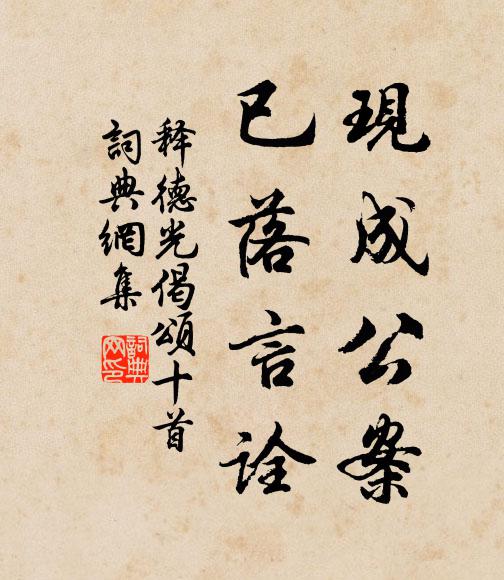 現成公案
已落言詮
释德光偈頌十首
詞典網集
詞典
网印